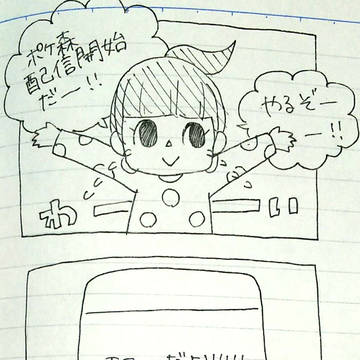 ポケ森
配信開始
だー!!
やるぞー
ー!!
わーーい